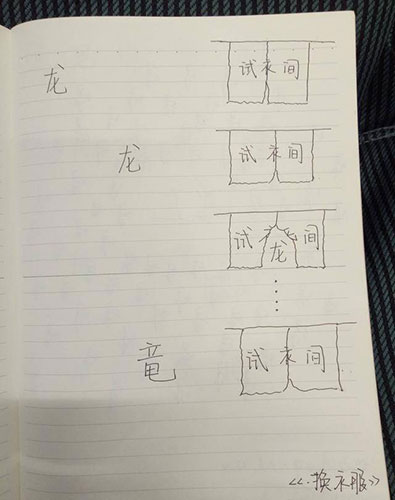 龙 试衣间
龙 试衣间
试衣间
龙
竜 试衣间
《换衣服》